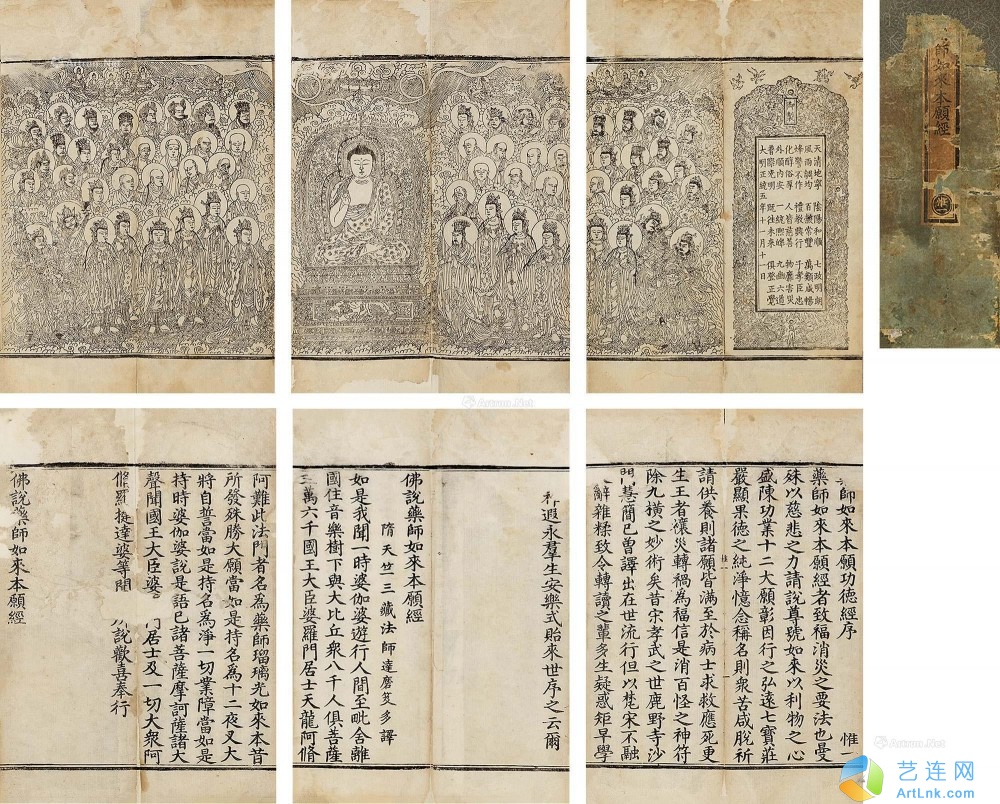 師如來本願經
惟一
御製
天清地寧 陰陽和順 七政明朗
風雨調均 百穀常豐 萬類咸暢
烽警不作 禮教興行 子孝臣忠
化醇俗厚 人皆慈善 物靡害災
外順內安 一統熙皞 九幽六道
普際光明 既往未來 俱登正覺
大明正統五年十一月十一日
師如來本願功德經序 惟一
藥師如來本願經者致福消災之要法也曼
殊以慈悲之力請說尊號如來以利物之心
盛陳功業十二大願彰因行之弘遠七寶莊
嚴顯果德之純淨憶念稱名則衆苦咸脫祈
請供養則諸願皆滿至於病士求救應死更
生王者禳災轉禍為福信是消百怪之神符
除九橫之妙術矣昔宋孝武之世鹿野寺沙
門慧簡已曾譯出在世流行但以梵宋不融
辭雜糅致令轉讀之輩多生疑惑矩早學
遐永羣生安樂式貽來世序之云爾
佛說藥師如來本願經
隋天竺三藏法師達磨笈多譯
如是我聞一時婆伽婆遊行人間至毗舍離
國住音樂樹下與大比丘衆八千人俱菩薩
三萬六千國王大臣婆羅門居士天龍阿脩
阿難此法門者名為藥師瑠璃光如來本昔
所發殊勝大願當如是持名為十二夜叉大
將自誓當如是持名為淨一切業障當如是
持時婆伽婆說是語已諸菩薩摩訶薩諸大
聲聞國王大臣婆 門居士及一切大衆阿
脩羅揵達婆等聞 所說歡喜奉行
佛說藥師如來本願經
Artron.Net
Artron.Net
艺连网
ArtLnk.com